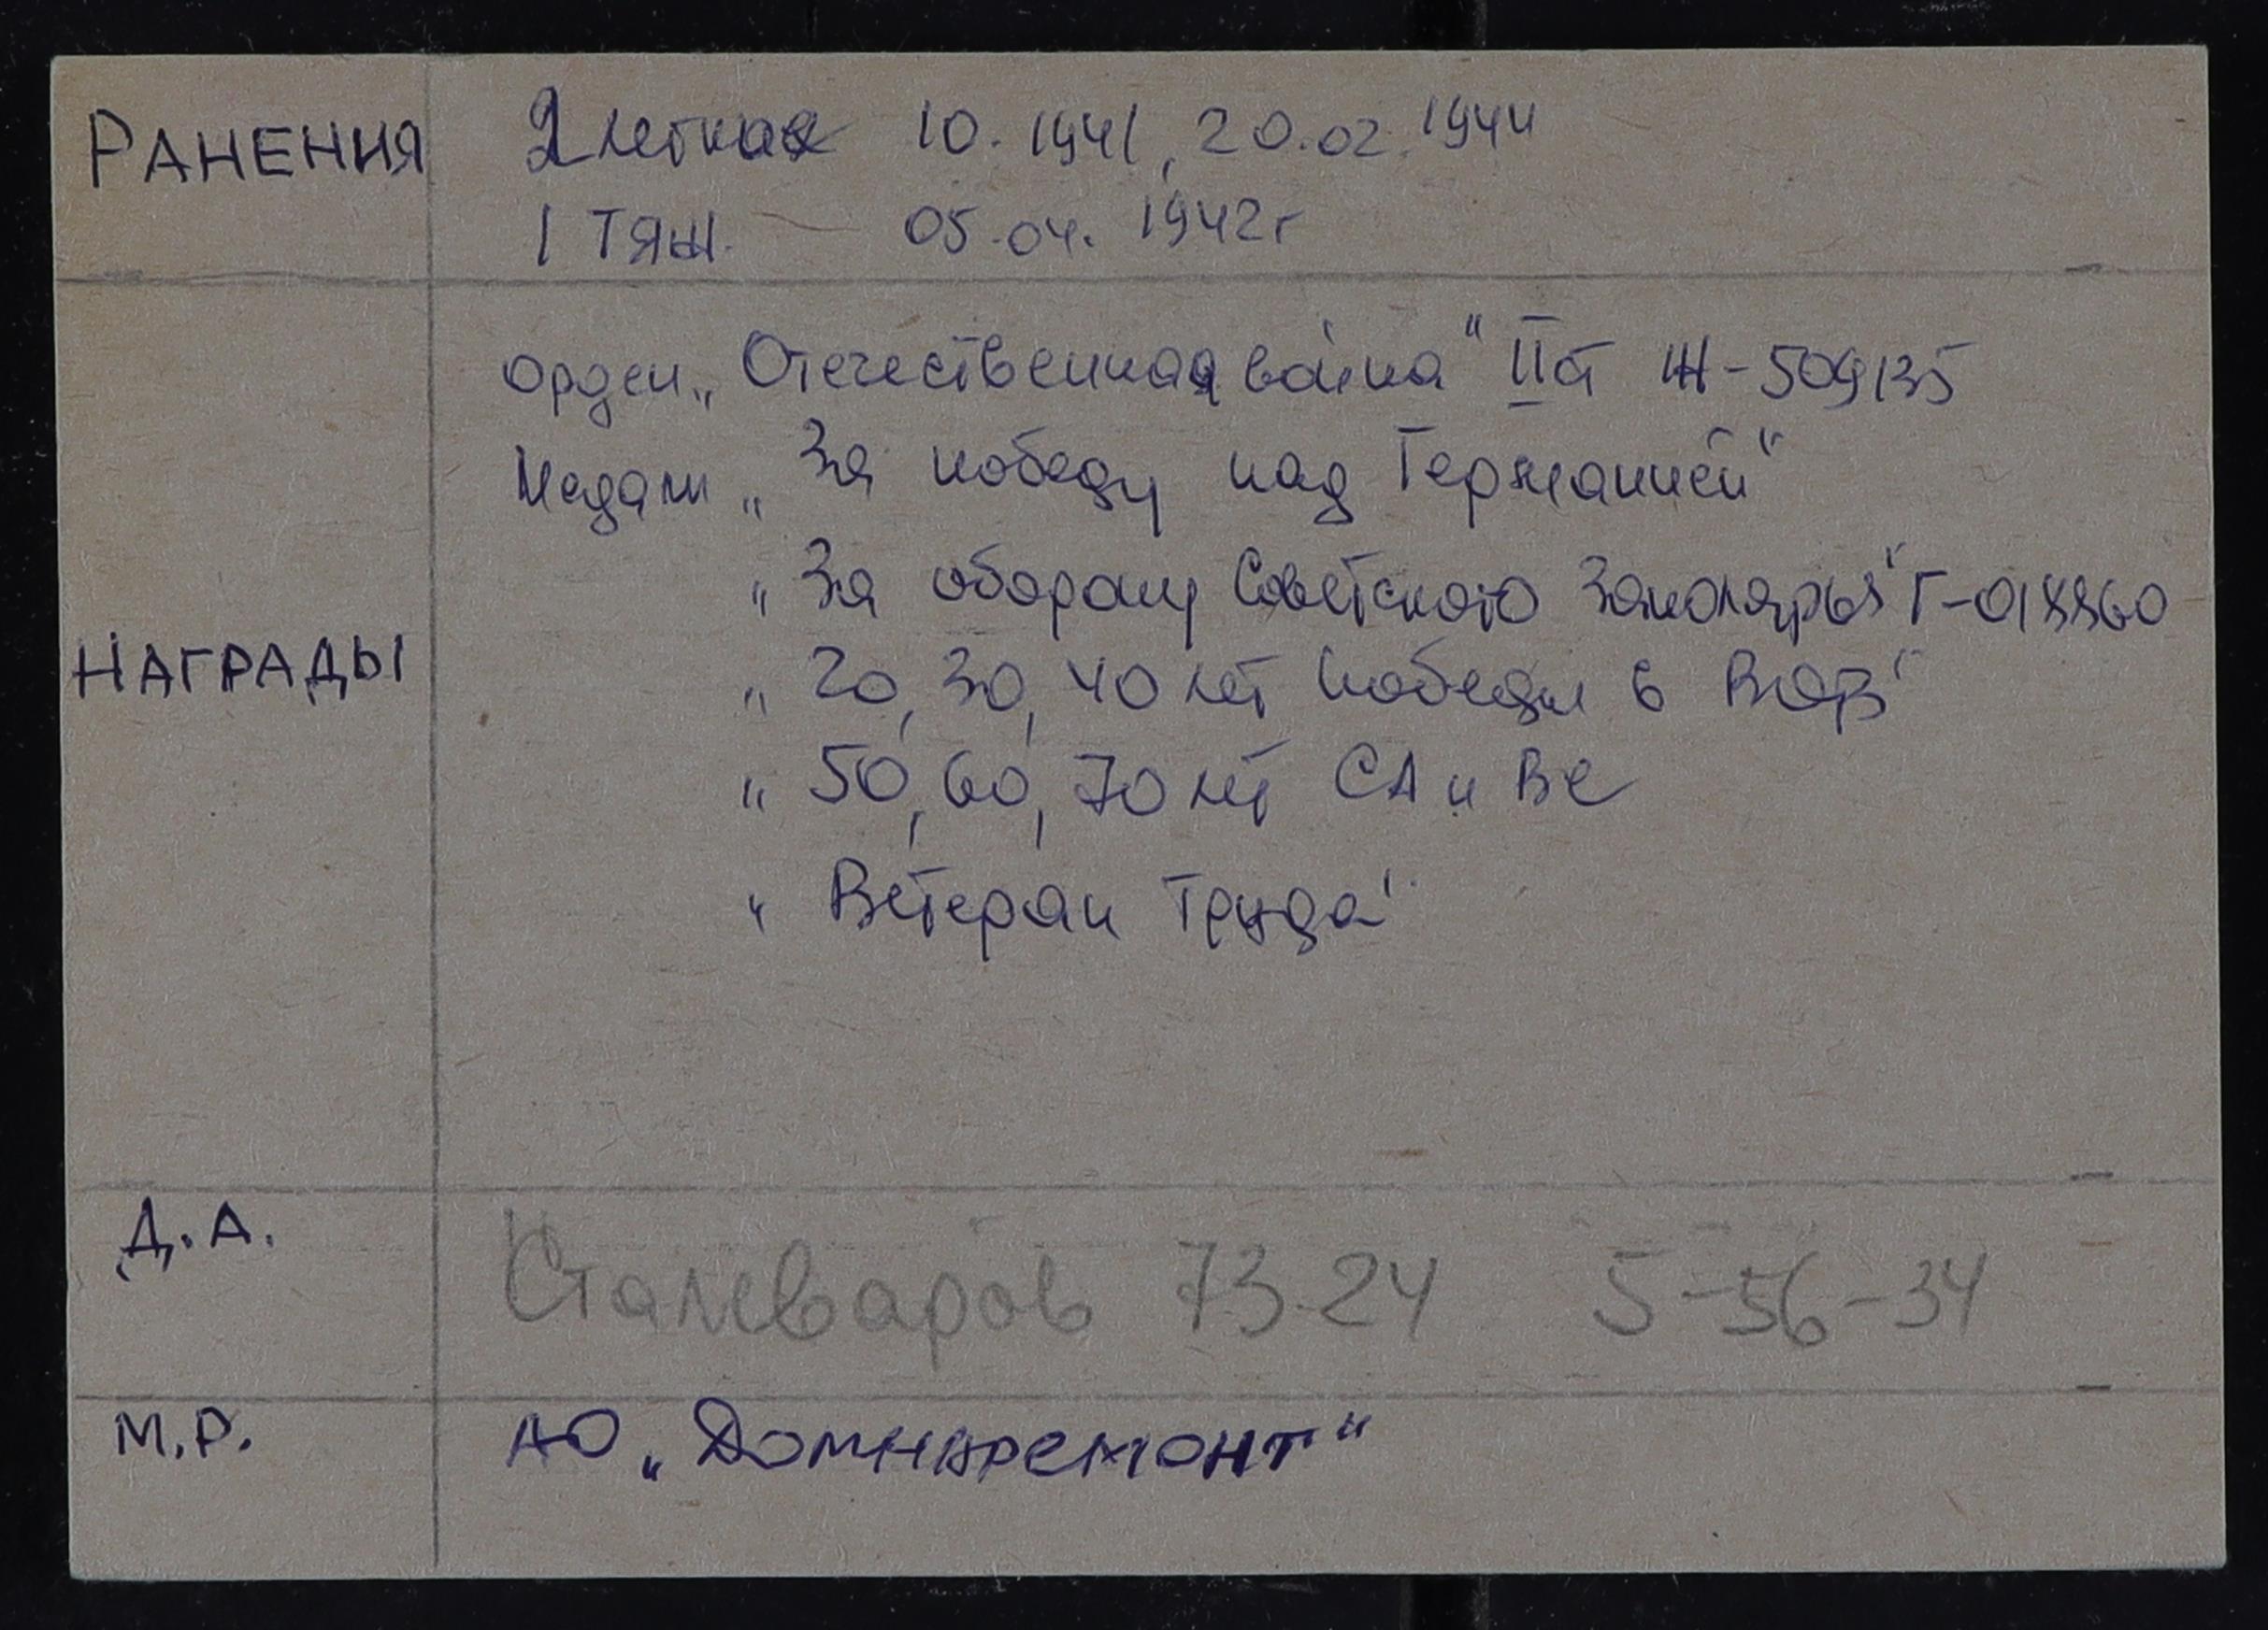 РАНЕНИЯ 2 легках 10.1941, 20.02.1944
1 ТЯЖ. 05.04.1942г
НАГРАДЫ
орден „Отечественная война" II ст Ж-509135
Медали „За победу над Германией"
„За оборону Советского Заполярья" Г-018860
„20, 30, 40 лет победы в ВОВ"
„50, 60, 70 лет СА и ВС
„Ветеран Труда"
Д.А. Сталеваров 73-24 5-56-34
М.Р. АО „Домнаремонт"